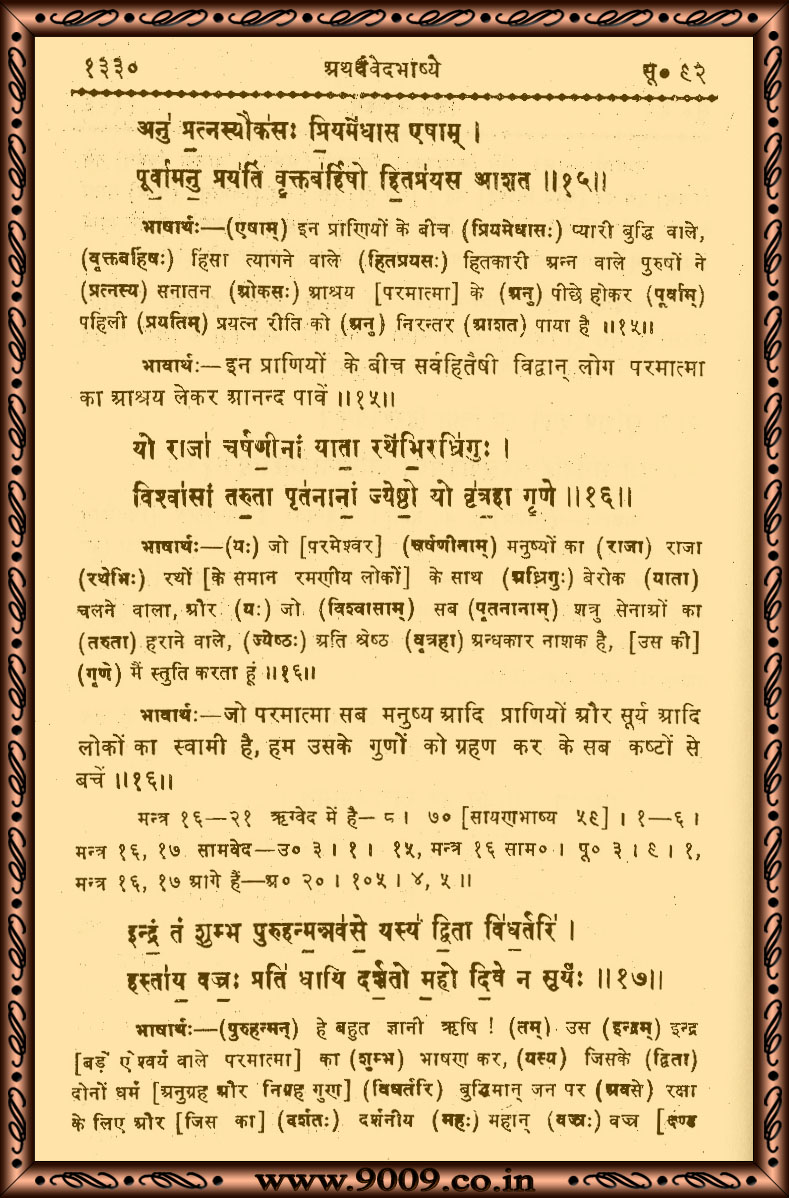 १३३० अथर्ववेदभाष्ये सू० ९२
अनु॑ प्र॒त्नस्यौक॑सः प्रि॒यमे॑धास एषाम् ।
पूर्वा॒मनु॒ प्रय॑तिं वृ॒क्तब॑र्हिषो हि॒तप्र॑यस आशत ॥१५॥
भाषार्थः—(एषाम्) इन प्राणियों के बीच (प्रियमेधासः) प्यारी बुद्धि वाले,
(वृक्तबर्हिषः) हिंसा त्यागने वाले (हितप्रयसः) हितकारी अन्न वाले पुरुषों ने
(प्रत्नस्य) सनातन (ओकसः) आश्रय [परमात्मा] के (अनु) पीछे होकर (पूर्वाम्)
पहिली (प्रयतिम्) प्रयत्न रीति को (अनु) निरन्तर (आशत) पाया है ॥१५॥
भावार्थः—इन प्राणियों के बीच सर्वहितैषी विद्वान् लोग परमात्मा
का आश्रय लेकर आनन्द पावें ॥१५॥
यो राजा॑ चर्षणी॒नां याता॒ रथे॑भि॒रध्रि॑गुः ।
विश्वा॑सां तरु॒ता पृत॑नानां॒ ज्येष्ठो॒ यो वृ॑त्र॒हा गृ॒णे ॥१६॥
भाषार्थः—(यः) जो [परमेश्वर] (चर्षणीनाम्) मनुष्यों का (राजा) राजा
(रथेभिः) रथों [के समान रमणीय लोकों] के साथ (अध्रिगुः) बेरोक (याता)
चलने वाला, और (यः) जो (विश्वासाम्) सब (पृतनानाम्) शत्रु सेनाओं का
(तरुता) हराने वाले, (ज्येष्ठः) अति श्रेष्ठ (वृत्रहा) अन्धकार नाशक है, [उस की]
(गृणे) मैं स्तुति करता हूं ॥१६॥
भावार्थः—जो परमात्मा सब मनुष्य आदि प्राणियों और सूर्य आदि
लोकों का स्वामी है, हम उसके गुणों को ग्रहण कर के सब कष्टों से
बचें ॥१६॥
मन्त्र १६—२१ ऋग्वेद में है— ८ । ७० [सायणभाष्य ५९] । १—६ ।
मन्त्र १६, १७ सामवेद—उ० ३ । १ । १५, मन्त्र १६ साम० । पू० ३ । ९ । १,
मन्त्र १६, १७ आगे हैं—अ० २० । १०५ । ४, ५ ॥
इन्द्रं॒ तं शु॑म्भ पुरुहन्म॒न्नव॑से॒ यस्य॑ द्वि॒ता वि॑ध॒र्तरि॑ ।
हस्ता॑य॒ वज्रः॒ प्रति॑ धायि दर्श॒तो म॒हो दि॒वे न सूर्यः॑ ॥१७॥
भाषार्थः—(पुरुहन्मन्) हे बहुत ज्ञानी ऋषि ! (तम्) उस (इन्द्रम्) इन्द्र
[बड़े ऐश्वर्य वाले परमात्मा] का (शुम्भ) भाषण कर, (यस्य) जिसके (द्विता)
दोनों धर्म [अनुग्रह और निग्रह गुण] (विधर्तरि) बुद्धिमान् जन पर (अवसे) रक्षा
के लिए और [जिस का] (दर्शतः) दर्शनीय (महः) महान् (वज्रः) वज्र [दण्ड
www.9009.co.in